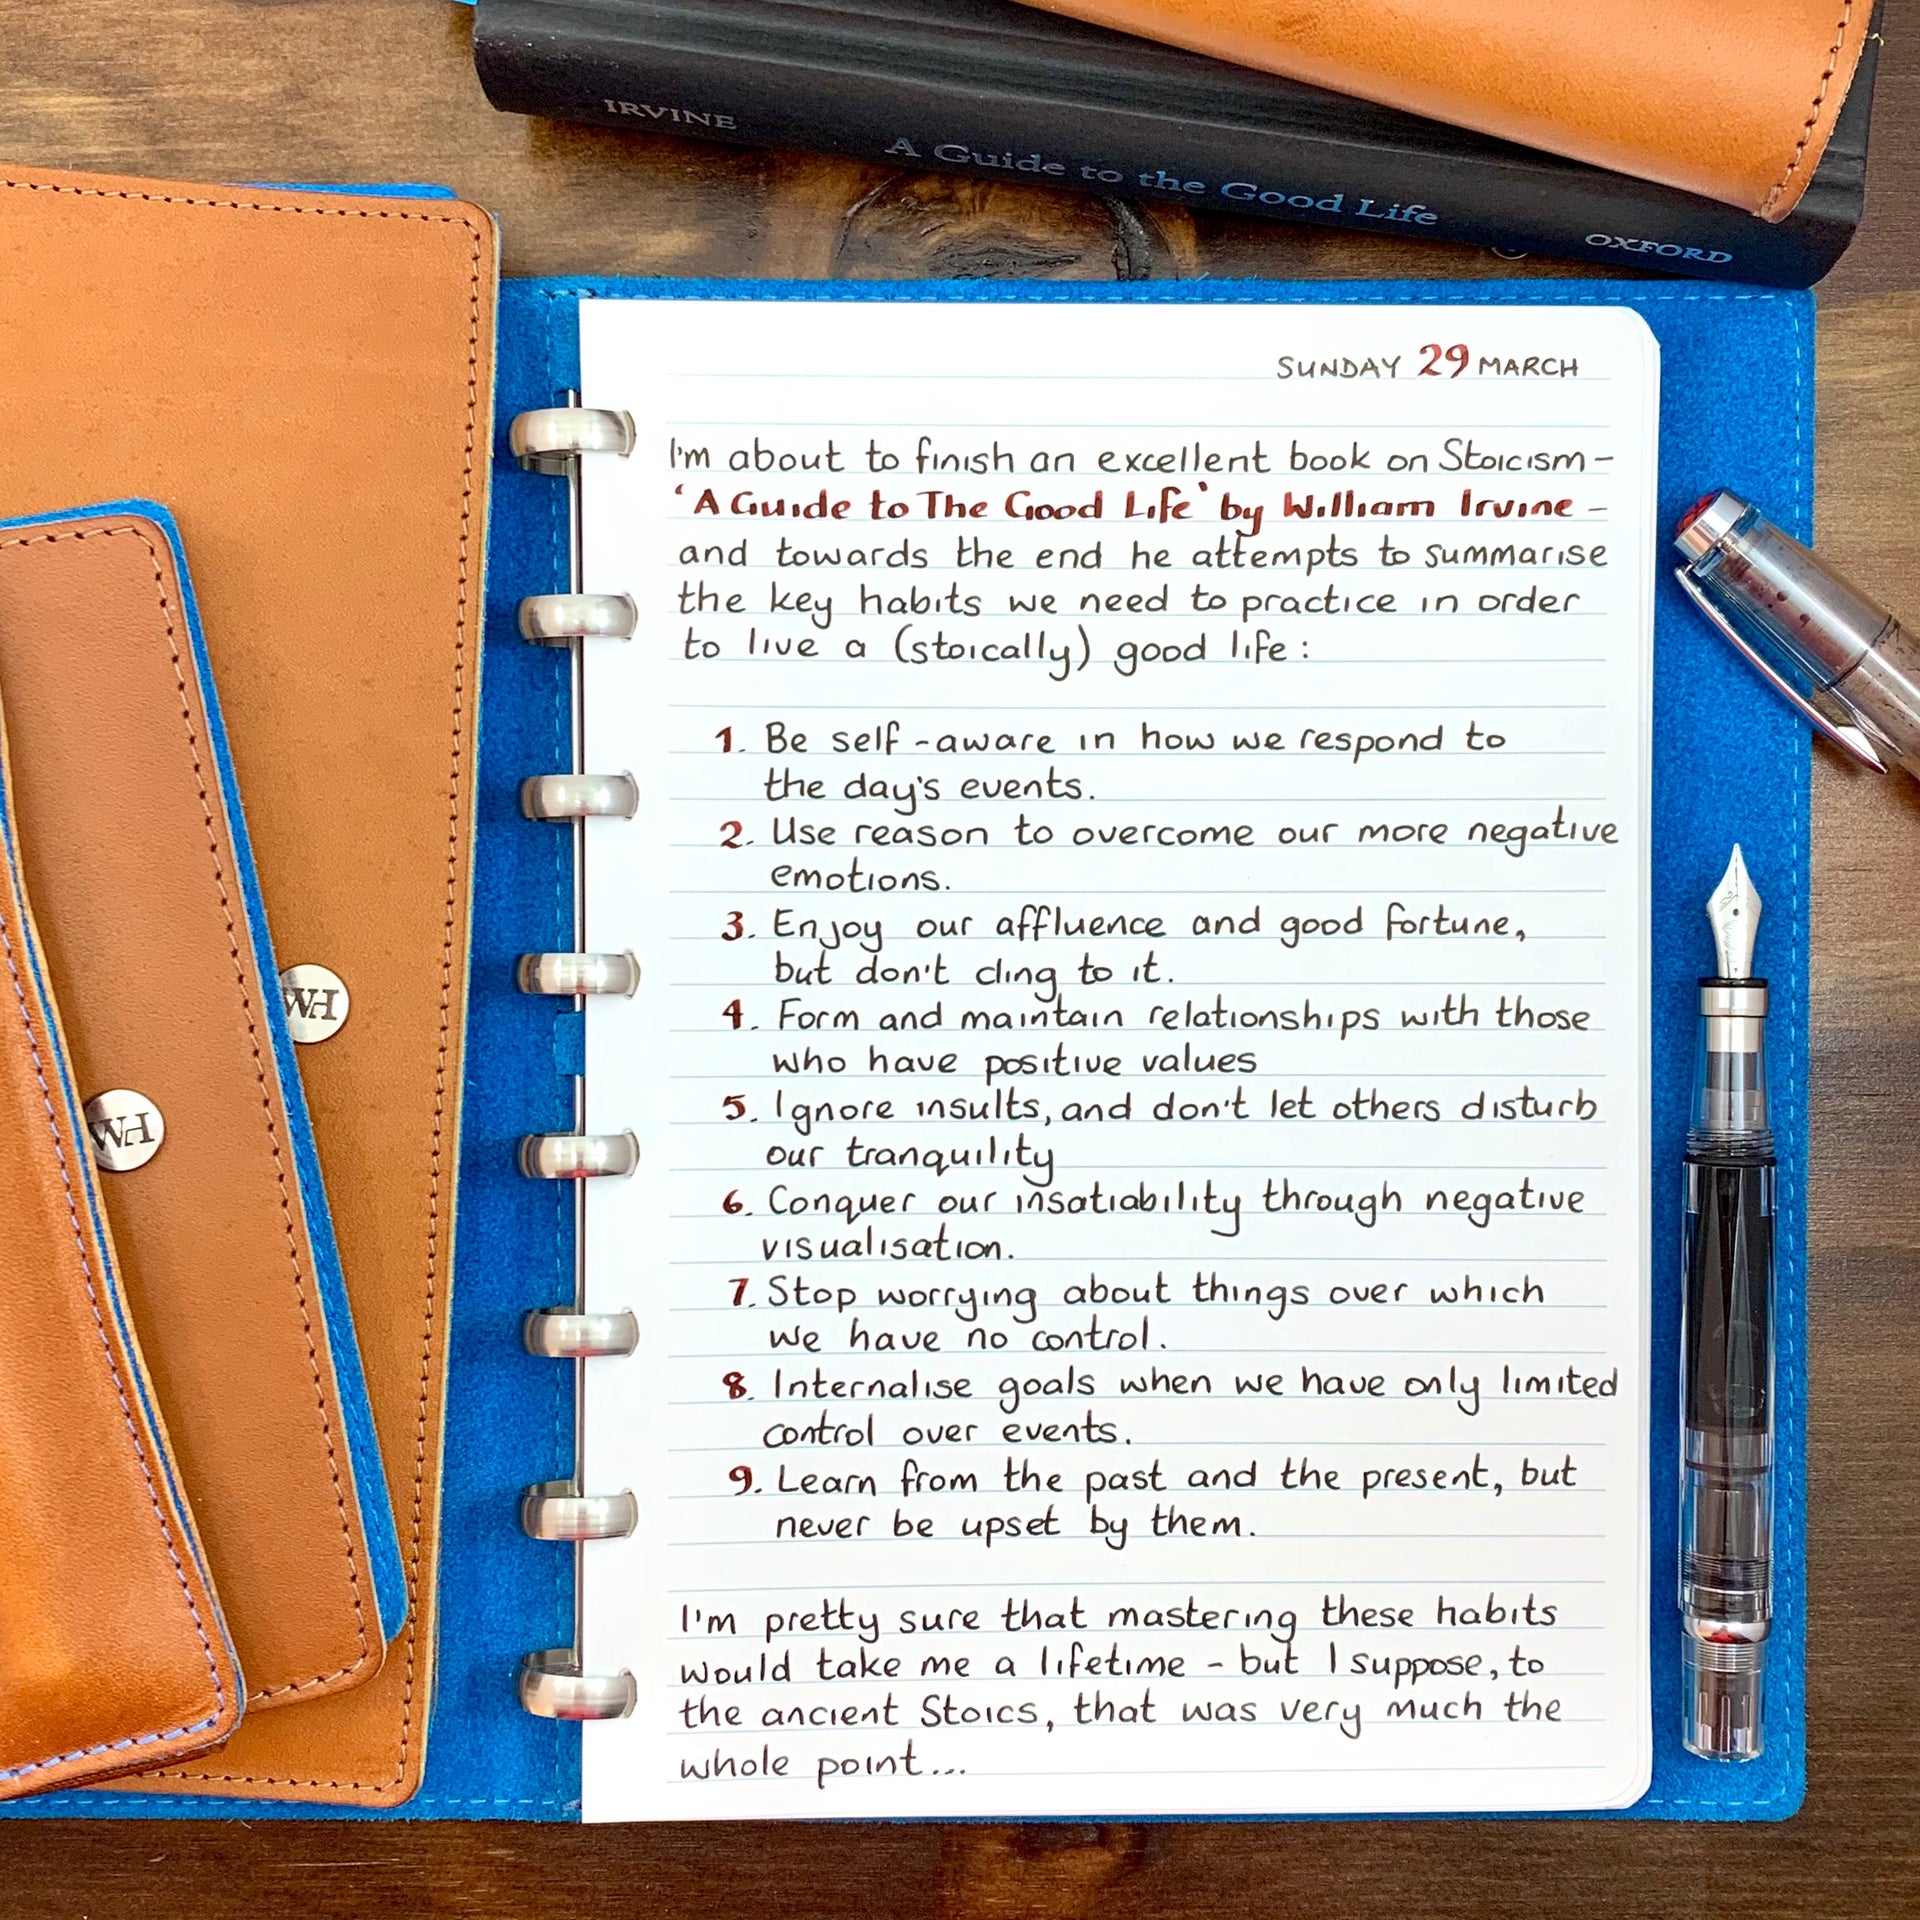 IRVINE
A Guide to the Good Life
OXFORD
SUNDAY 29 MARCH
I'm about to finish an excellent book on Stoicism -
'A Guide to The Good Life' by William Irvine -
and towards the end he attempts to summarise
the key habits we need to practice in order
to live a (stoically) good life :
1. Be self-aware in how we respond to
the day's events.
2. Use reason to overcome our more negative
emotions.
3. Enjoy our affluence and good fortune,
but don't cling to it.
4. Form and maintain relationships with those
who have positive values
5. Ignore insults, and don't let others disturb
our tranquility
6. Conquer our insatiability through negative
visualisation.
7. Stop worrying about things over which
we have no control.
8. Internalise goals when we have only limited
control over events.
9. Learn from the past and the present, but
never be upset by them.
I'm pretty sure that mastering these habits
would take me a lifetime - but I suppose, to
the ancient Stoics, that was very much the
whole point...
WH
WH